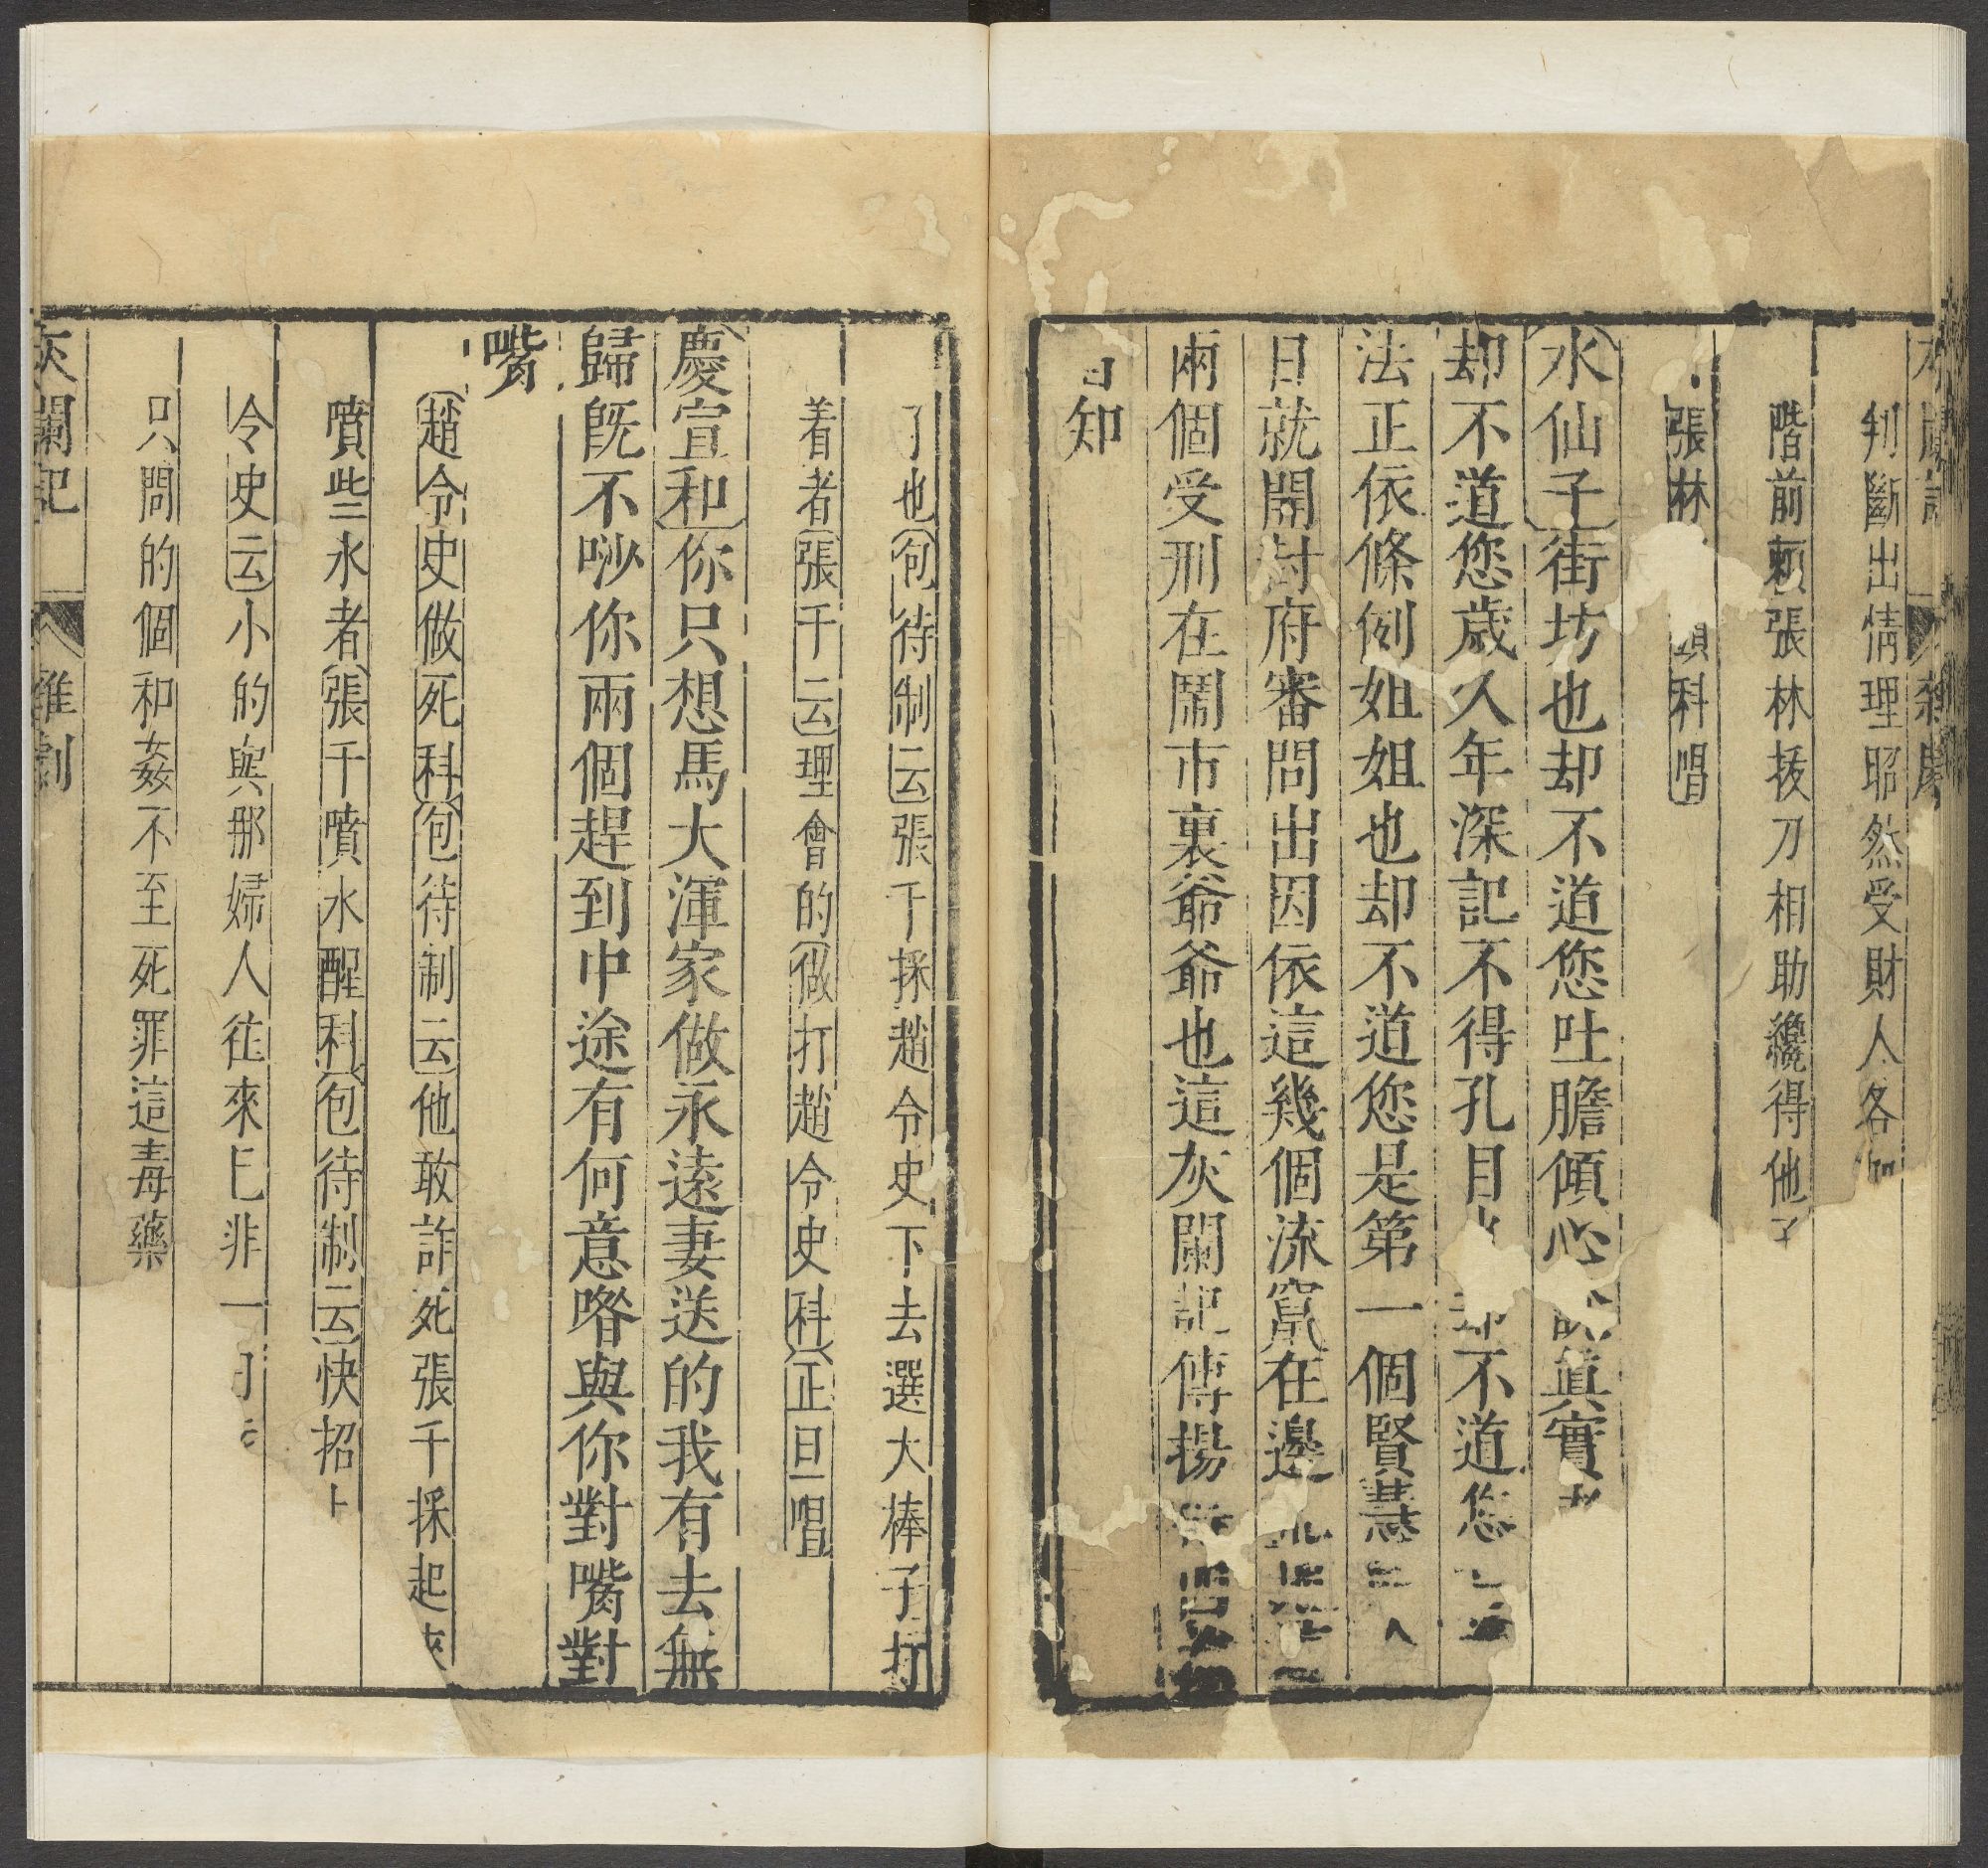 判斷出情理昭然受財人各
階前賴張林拔刀相助纔得他
張林 科唱
水仙子街坊也却不道您吐膽傾心 真實
却不道您歲久年深記不得孔目 却不道您
法正依條例姐姐也却不道您是第一個賢慧 人
日就開封府審問出因依這幾個流竄在邊
兩個受刑在鬧市裏爺爺也這灰闌記傳揚
知
了也包待制云張千採趙令史下去選大棒子打
着者張千云理會的做打趙令史科正旦唱
慶宣和你只想馬大渾家做永遠妻送的我有去無
歸旣不吵你兩個趕到中途有何意喒與你對嘴對
嘴
趙令史做死科包待制云他敢詐死張千採起來
噴些水者張千噴水醒科包待制云快招上
令史云小的與那婦人往來已非一日
只問的個和姦不至死罪這毒藥
灰闌記 雜劇